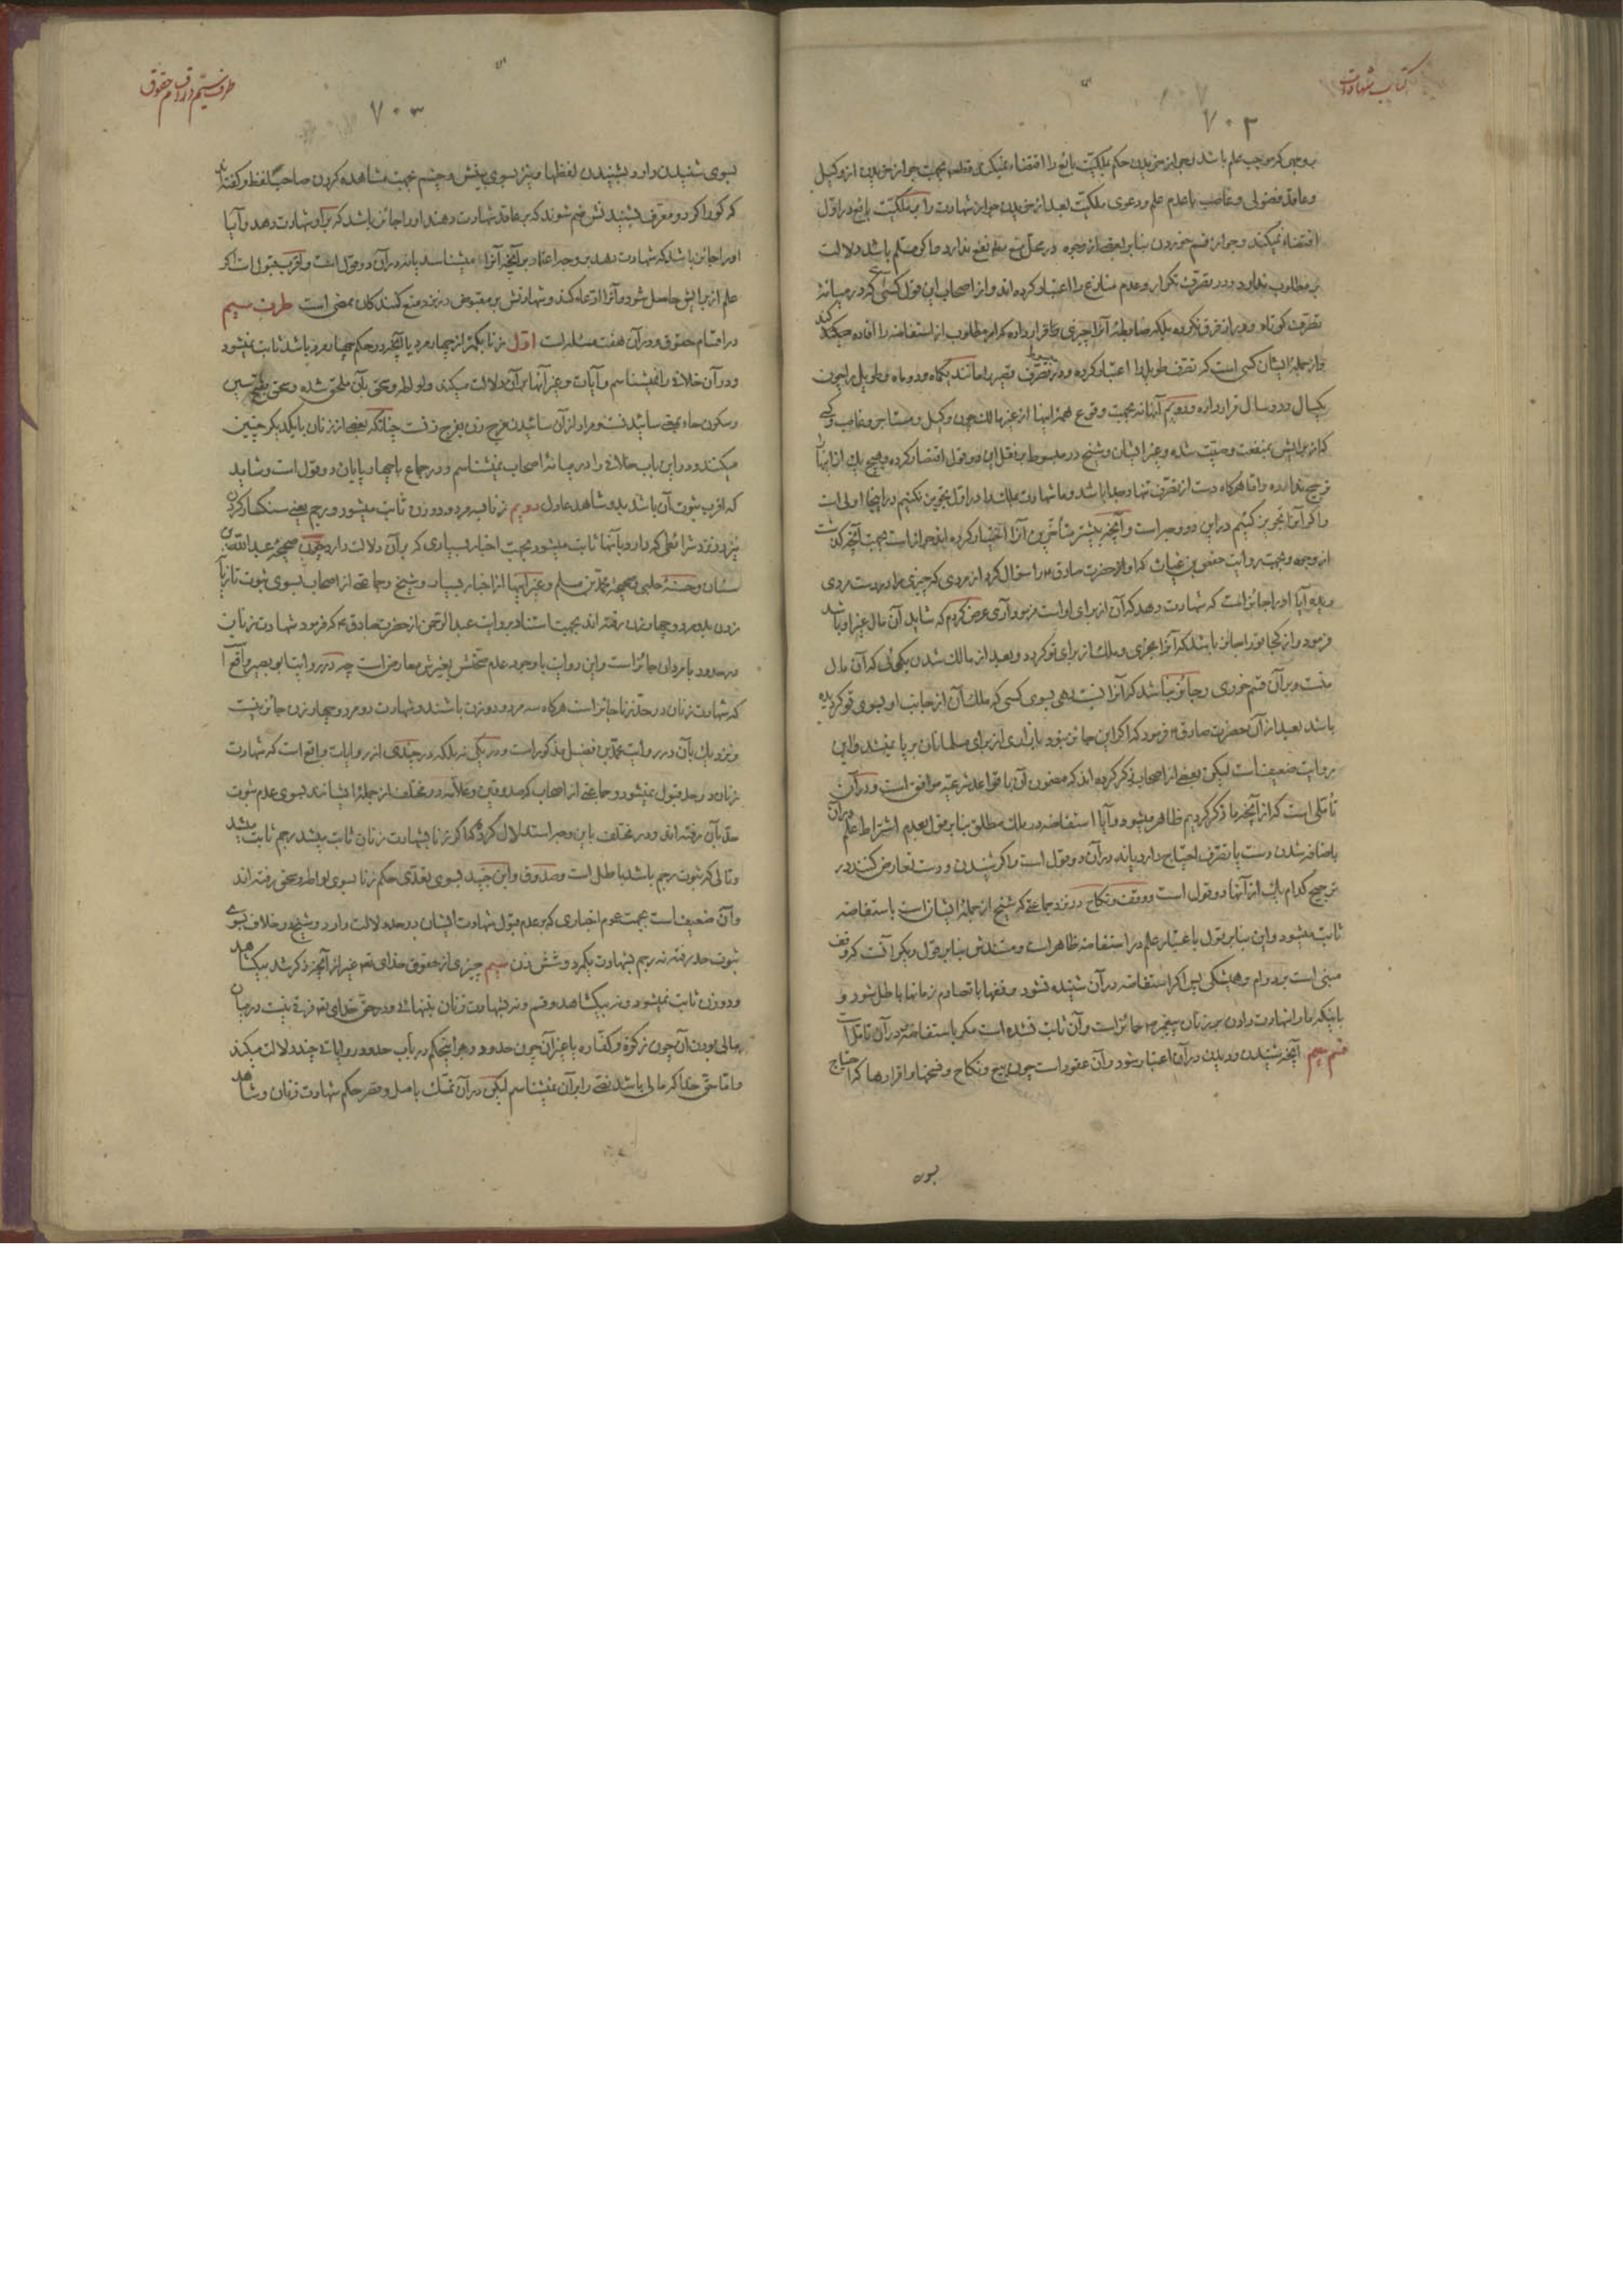 کتاب شهادات
۷۰۲
بوجهی که موجب علم باشد و جواز خریدن حکم بملکیّت بایع را اقتضاء نمیکند قطعا بجهت جواز خریدن از وکیل
و عاقد فضولی و غاصب با عدم علم و دعوی ملکیّت بعد از خریدن جواز شهادت را بملکیّت بایع در اوّل
اقتضاء نمیکند و جواز قسم خوردن بنا بر بعضی از وجوه در محلّ منع نفع ندارد و اگر مسلّم باشد دلالت
بر مطلوب ندارد و در تصرّف تکرار و عدم منازع را اعتبار کرده اند و از اصحاب این قول کسی که در میانهٔ
تصرّف کوتاه و دراز فرق نکرده بلکه ضابطهٔ آنرا چیزی قرار داده که امر مطلوب از استفاضه را افاده میکند
و از جملهٔ ایشان کسی است که تصرّف طویل را اعتبار کرده و در تصرّف قصیر را مانند یکماه و دو ماه و طویل را چون
یکسال و دو سال قرار داده و دویم آنها نه بجهت وقوع همهٔ اینها از غیر مالک چون وکیل و مستاجر و غاصب و کسی
که از برایش بمنفعت وصیّت شده و غیر ایشان و شیخ در مبسوط بر نقل این دو قول اقتصار کرده و هیچ یک از ایشان
ترجیح نداده و امّا هرگاه دست از تصرّف تنها و جدا باشد و ما شهادت ملک را در اوّل تجویز نکنیم در اینجا اولی است
و اگر آنرا تجویز کنیم در این دو وجه است و آنچه بیشتر متأخّرین آنرا اختیار کرده اند جواز است بجهت آنچه گذشت
از وجوه و بجهت روایت حفص بن غیاث که او از حضرت صادق ع را سؤال کرد از مردی که چیزی را در دست مردی
دیده آیا او را جائز است که شهادت دهد که آن از برای او است فرمود آری عرض کردم که شاید آن مال غیر او باشد
فرمود و از کجا تو را جائز باشد که آنرا بخری و ملک از برای تو گردد و بعد از مالک شدن بگوئی که آن مال
منست و بر آن قسم خوری و جائز نباشد که آنرا نسبت دهی بسوی کسی که ملک آن از جانب او بسوی تو گردیده
باشد بعد از آن حضرت صادق ع فرمود که اگر این جائز نبود بازاری از برای مسلمانان بر پا نمیشد و این
روایت ضعیف است لیکن بعضی از اصحاب ذکر کرده اند که مضمون آن با قواعد شرعیّه موافق است و در آن
تأمّلی است که از آنچه ما ذکر کردیم ظاهر میشود و آیا استفاضه در ملک مطلق بنا بر قول بعدم اشتراط علم در آن
باضافه شدن دست یا تصرّف احتیاج دارد یا نه در آن دو قول است و اگر شنیدن و دست تعارض کنند در
ترجیح کدام یک از آنها دو قول است و وقف و نکاح در نزد جماعتی که شیخ از جملهٔ ایشان است باستفاضه
ثابت میشود و این بنا بر قول باعتبار علم در استفاضه ظاهر است و مستندش بنا بر قول دیگر آنست که وقف
مبنی است بر دوام و همیشگی پس اگر استفاضه در آن شنیده نشود وقفها با تصادم زمانها باطل شود و
باینکه ما را شهادت دادن بر زنان پیغمبر ص جائز است و آن ثابت نشده است مگر باستفاضه و در آن تامّل است
قسم سیم آنچه شنیدن و دیدن در آن اعتبار شود و آن عقود است چون بیع و نکاح و فسخها و اقرارها که احتیاج
بسوی
طرف سیم در اقسام حقوق
۷۰۳
بسوی شنیدن دارد بشنیدن لفظها و نیز بسوی بینش و چشم بجهت مشاهده کردن صاحب لفظ و گفته اند
که کور اگر دو معرّف بشنیدنش ضم شوند که بر عاقد شهادت دهند او را جائز باشد که بر او شهادت دهد و آیا
او را جائز باشد که شهادت دهد بر وجه اعتماد بر آنچه آنرا میشناسد یا نه در آن دو قول است و اقرب قبول است اگر
علم از برایش حاصل شود و آنرا ادّعاء کند و شهادتش بر مقبوض در نزد منع کنندگان ممضی است طرف سیم
در اقسام حقوق و در آن هفت مسئله است اوّل زنا بکمتر از چهار مرد یا آنچه در حکم چهار مرد باشد ثابت نمیشود
و در آن خلافی را نمیشناسم و آیات و غیر آنها بر آن دلالت میکند و لواط و سحق بآن ملحق شده و سحق بفتح سین
و سکون حاء بمعنی سائیدنست و مراد از آن سائیدن فرج زن بفرج زنست چنانکه بعضی از زنان با یکدیگر چنین
میکنند و در این باب خلافی را در میانهٔ اصحاب نمیشناسم و در جماع با چهار پایان دو قول است و شاید
که اقرب ثبوت آن باشد بدو شاهد عادل دویم زنا بسه مرد و دو زن ثابت میشود و رجم یعنی سنگسار کردن
نیز در نزد شرائطی که دارد بآنها ثابت میشود بجهت اخبار بسیاری که بر آن دلالت دارد چون صحیحهٔ عبد الله بن
سنان و حسنهٔ حلبی و صحیحهٔ محمّد بن مسلم و غیر اینها از اخبار بسیار و شیخ و جماعتی از اصحاب بسوی ثبوت تازیانه
زدن بدو مرد و چهار زن رفته اند بجهت استناد بروایت عبد الرّحمن از حضرت صادق ع که فرمود شهادت زنان
در حدود با مردان جائز است و این روایت با وجود عدم صحّتش بغیرش معارض است چه در روایت ابو بصیر واقع است
که شهادت زنان در حدّ زنا جائز است هرگاه سه مرد و دو زن باشند و شهادت دو مرد و چهار زن جائز نیست
و نزدیک بآن در روایت محمّد بن فضیل مذکور است و در یکی نه بلکه در چندی از روایات واقع است که شهادت
زنان در حد قبول نمیشود و جماعتی از اصحاب که صدوقین و علّامه در مختلف از جملهٔ ایشانند بسوی عدم ثبوت
حدّ بآن رفته اند و در مختلف باین وجه استدلال کرده که اگر زنا بشهادت زنان ثابت میشد رجم ثابت میشد
و تالی که ثبوت رجم باشد باطل است و صدوق و ابن جنید بسوی تعدّی حکم زنا بسوی لواط و سحق رفته اند
و آن ضعیف است بجهت عموم اخباری که بر عدم قبول شهادت ایشان در حدود دلالت دارد و شیخ در خلاف بسوی
ثبوت حد رفته نه رجم بشهادت یکمرد و شش زن سیم چیزی از حقوق خدای تعالی غیر از آنچه ذکر شد بیکشاهد
و دو زن ثابت نمیشود و نه بیکشاهد و قسم و نه بشهادت زنان بتنهائی و در حقّ خدای تعالی فرقی نیست در میان
مالی بودن آن چون زکوة و کفّاره یا غیر آن چون حدود و بر اینحکم در باب حدود روایاتی چند دلالت میکند
و امّا حقّ خدا که مالی باشد نصّی را بر آن نمیشناسم لیکن در آن تمسّک باصل و قصر حکم شهادت زنان و شاهد